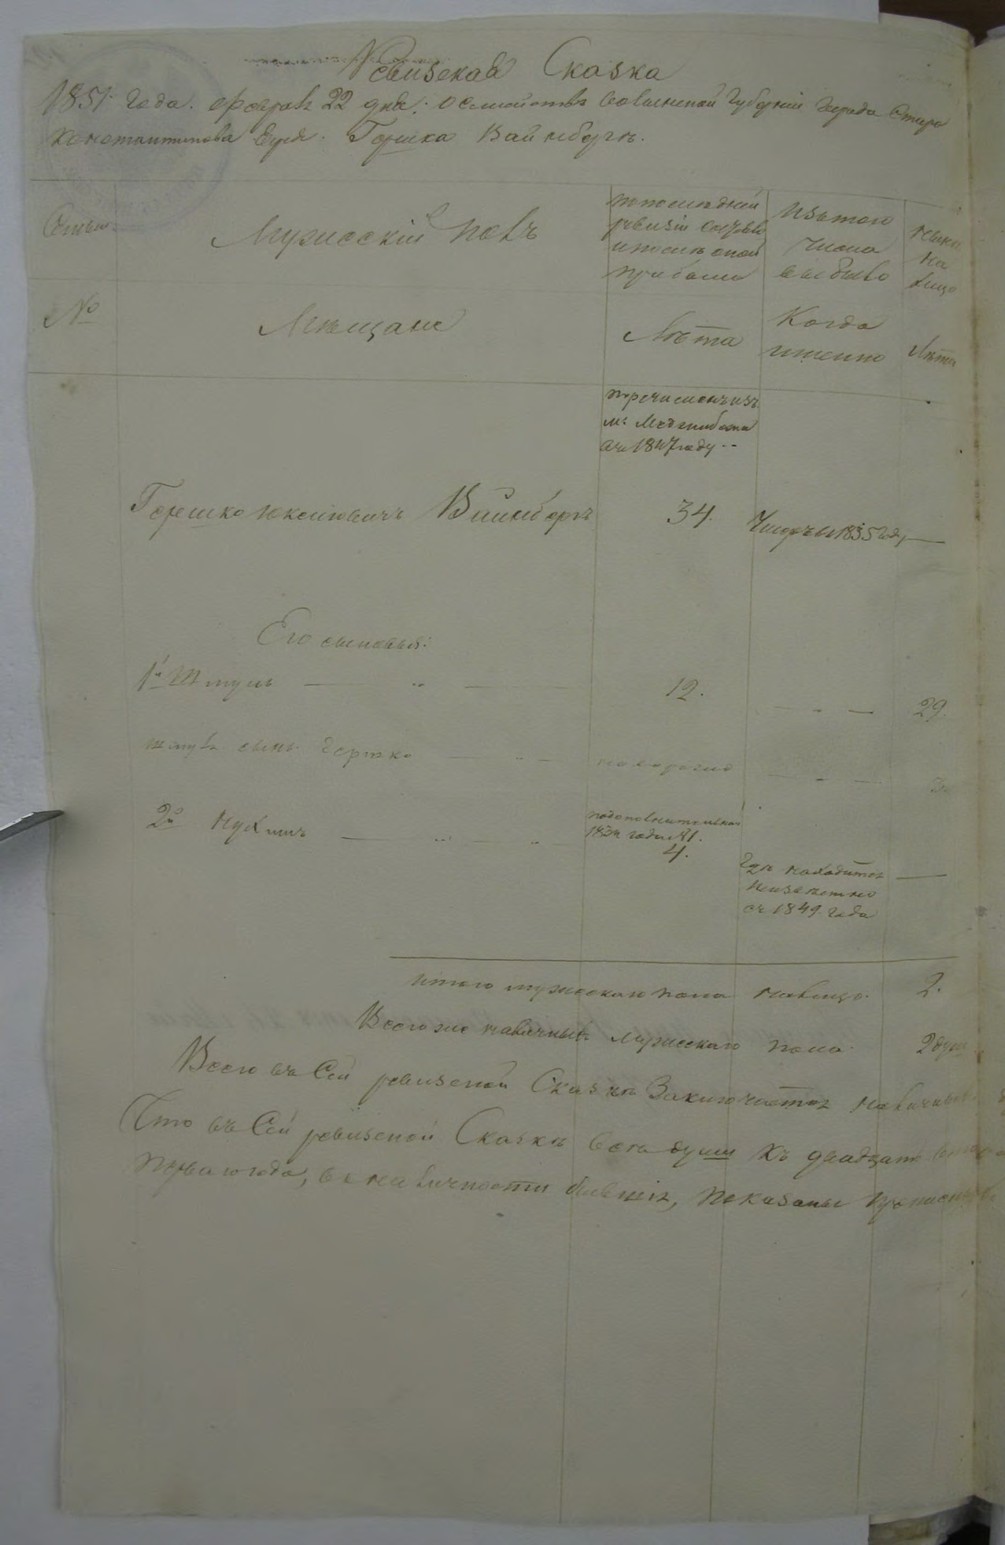 Ревизская Сказка
1851 года. февраля 22 дня. о семействе Волынской Губернии города Старо
константинова Еврея. Гершка Вайнберга.
Семьи
Мужескій Полъ
по последней
ревизіи состояло
и после оной
прибыло
Изъ того
числа
выбыло
ныне
на
лицо
№
Мещане
Лѣта
Когда
именно
Лѣта
перечисленъ изъ
м. Меджибожа
съ 1847 году
Гершко Юкелювичъ Вайнбергъ 34. Умеръ въ 1835 году —
Его сыновья:
1й Шмуль — 12. — 29.
Шмуля сынъ Гершко — — 3.
2й Нухимъ —
1834 года №1.
4.
Где находится
неизвестно
съ 1849 года —
Итого мужеска пола налицо 2.
Всего же наличныхъ мужескаго пола 2 душ
Всего въ Сей ревизской Сказке Заключается наличных
Что въ Сей ревизской Сказке все души къ двадцать
перваго года, въ наличности бывшіе, показаны